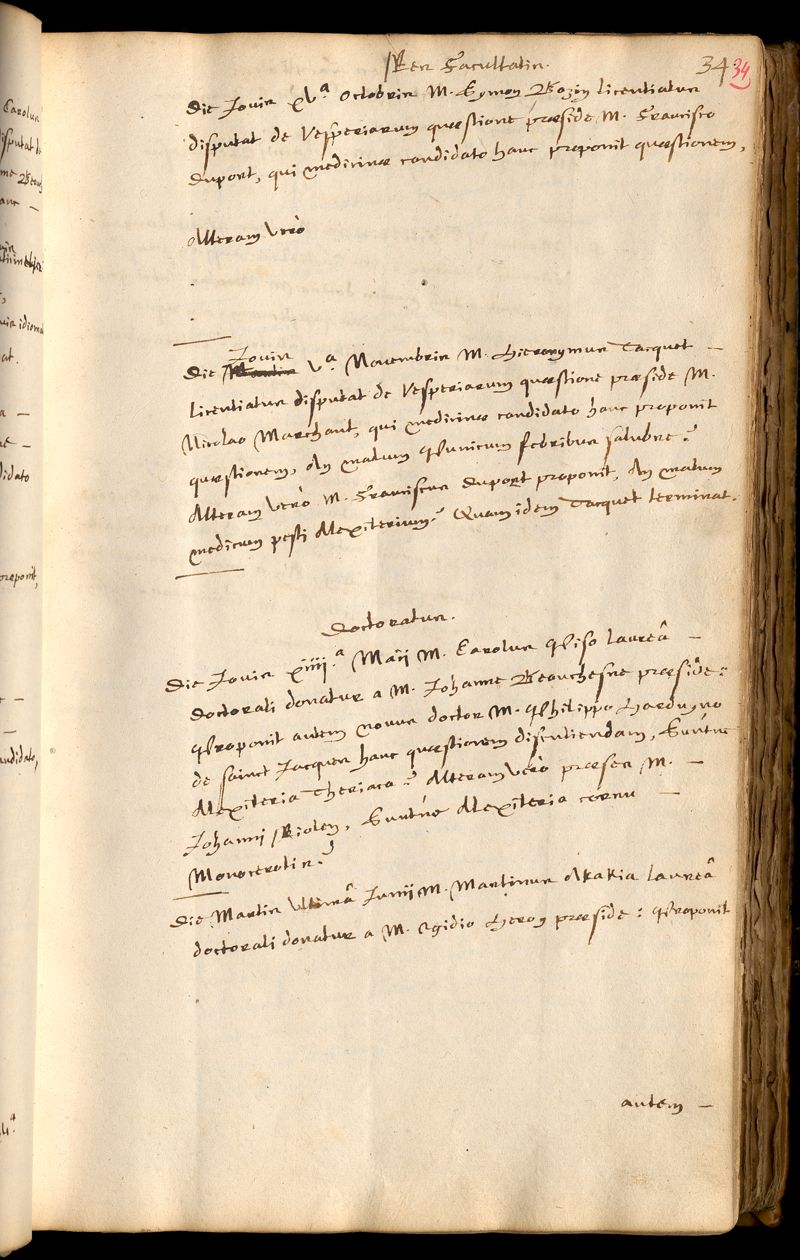 Res Facultatis.
34 34
Die Jovis xv.a Octobris M. Eymon Bozon licentiatus
disputat de Vesperiarum quæstione præside M. Francisco
Duport, qui medicinæ candidato hanc proponit quæstionem,
Alteram verò
Jovis
Die Martis v.a Novembris M. Hieronymus Tacquet —
licentiatus disputat de Vesperiarum quæstione præside M.
Nicolao Marchant, qui medicinæ candidato hanc proponit
quæstionem, An malum punicum febribus salubre?
Alteram verò M. Franciscus Duport proponit, An malum
medicum pesti Alexiterium? Quam idem Tacquet terminat.
Doctoratus.
Die Jovis xiiij.a Maij M. Carolus Piso laureâ —
doctorali donatur a M. Johanne Beauchesne præside:
Proponit autem novus doctor M. Philippo Harduyno
de Sainct Jacques hanc quæstionem discutiendam, Suntne
Alexiteria Theriaca? Alteram verò præses M. —
Johanni Riolen, Suntne Alexiteria cornu —
Monocerotis?
Die Martis ultimâ Junij M. Martinus Akakia laureâ
doctorali donatur a M. Ægidio Heron præside: Proponit
autem —